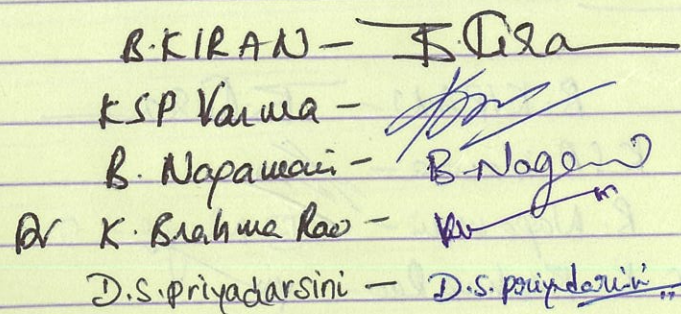 B.KIRAN – B.Kira
KSP Varma –
B. Nagamani – B.Nagamani
Dr K. Brahma Rao –
D.S.priyadarsini – D.S.priyadarsini